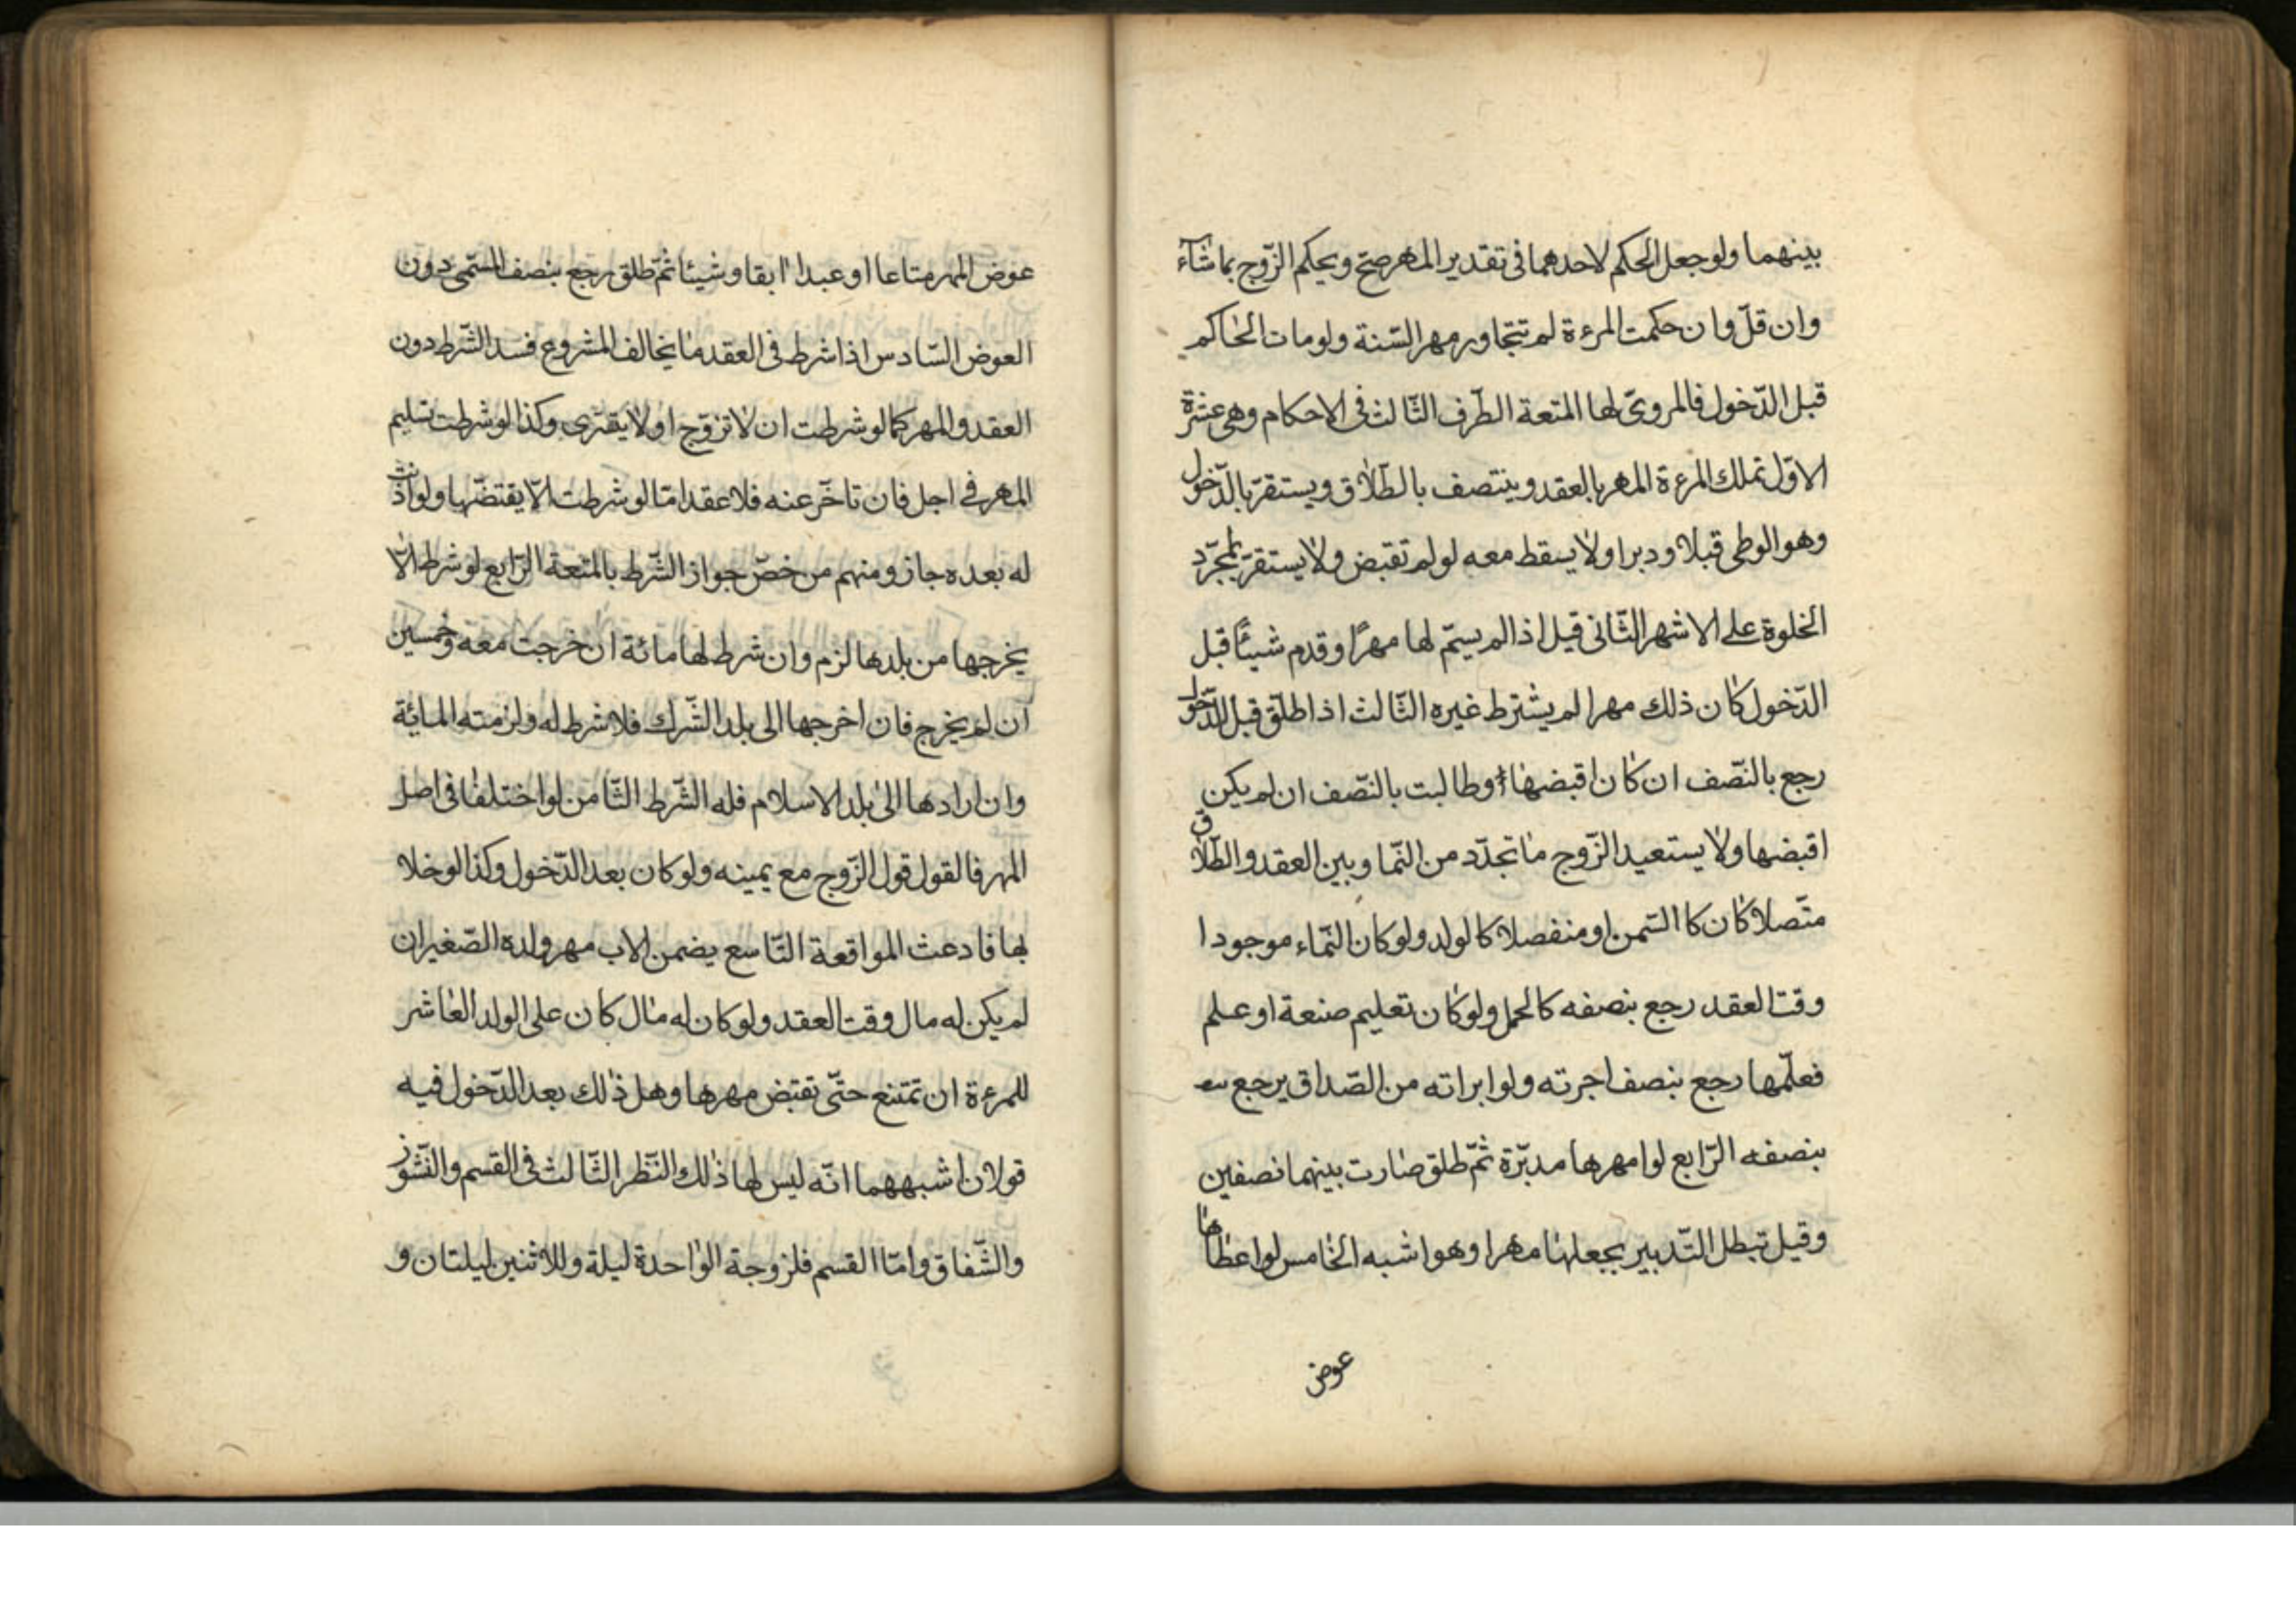 بينهما ولو جعل الحكم لاحدهما فى تقدير المهر صحّ ويحكم الزّوج بما شآء
وان قلّ وان حكمت المرءة لم تتجاوز مهر السّنة ولو مات الحاكم
قبل الدّخول فالمروىّ لها المتعة الطّرف الثّالث فى الاحكام وهى عشرة
الاوّل تملك المرءة المهر بالعقد وينتصف بالطّلاق ويستقرّ بالدّخول
وهو الوطى قبلا ودبرا ولا يسقط معه لو لم تقبض ولا يستقرّ بمجرّد
الخلوة على الاشهر الثّانى قيل اذا لم يسمّ لها مهرًا وقدم شيئًا قبل
الدّخول كان ذلك مهرا لم يشترط غيره الثّالث اذا طلّق قبل الدّخول
رجع بالنّصف ان كان اقبضها او طالبت بالنّصف ان لم يكن
اقبضها ولا يستعيد الزّوج ما تجدّد من النّما وبين العقد والطّلاق
متّصلا كان كا السّمن او منفصلا كالولد ولو كان النّماء موجودا
وقت العقد رجع بنصفه كالحمل ولو كان تعليم صنعة او علم
فعلّمها رجع بنصف اجرته ولو ابراته من الصّداق يرجع
بنصفه الرّابع لو امهرها مدبّرة ثمّ طلق صارت بينهما نصفين
وقيل تبطل التّدبير بجعلها مهرا وهو اشبه الخامس لو اعطاها
عوض
عوض المهر متاعا او عبدا ابقا وشيئا ثمّ طلق رجع بنصف المسّمى دون
العوض السّادس اذا شرط فى العقد ما يخالف المشروع فسد الشّرط دون
العقد والمهر كما لو شرطت ان لا تزوّج او لا يقترى وكذا لو شرطت تسليم
المهر فى اجل فان تاخّر عنه فلا عقد امّا لو شرطت الّا يقتضّها ولو اذنت
له بعده جاز ومنهم من خصّ جواز الشّرط بالمتعة الرّابع لو شرط الّا
يخرجها من بلدها لزم وان شرط لها مائة ان خرجت معه وخمسين
ان لم يخرج فان اخرجها الى بلد الشّرك فلا شرط له ولزمته المائة
وان ارادها الى بلد الاسلام فله الشّرط الثّامن لو اختلفا فى اصل
المهر فالقول قول الزّوج مع يمينه ولو كان بعد الدّخول وكذا لو خلا
بها فادعت المواقعة التّاسع يضمن الاب مهر ولده الصّغير ان
لم يكن له مال وقت العقد ولو كان له مال كان على الولد العاشر
للمرءة ان تمتنع حتّى تقبض مهرها وهل ذلك بعد الدّخول فيه
قولان اشبههما انّه ليس لها ذلك النّظر الثّالث فى القسم والنّشوز
والشّفاق وامّا القسم فلزوجة الواحدة ليلة وللاثنين ليلتان و